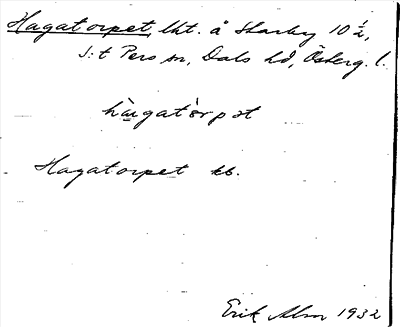 Hagatorpet, lht. å Skarby 10 ½,
S:t Pers sn, Dals hd, Österg. l.
hàgatòrpət
Hagatorpet kb.
Erik Abrn 1932